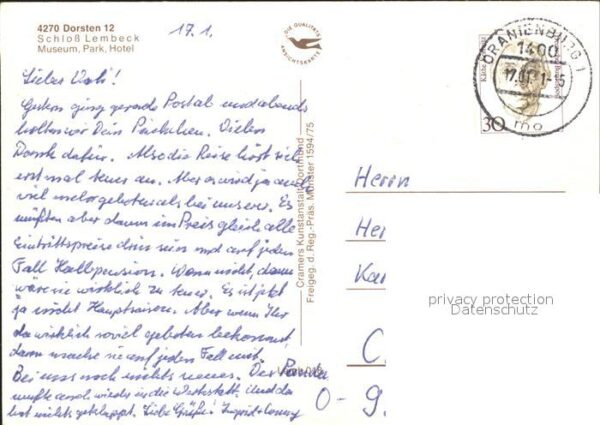 4270 Dorsten 12
Schloß Lembeck
Museum, Park, Hotel
17.1.
DIE QUALITÄTS
ANSICHTSKARTE
ORANIENBURG 1
1400
17.01. 1-5
mo
Käthe Kollwitz
30
Lieber Udi!
Gestern ging gerade Post ab und abends
hatten wir Dein Päckchen. Vielen
Dank dafür. Also die Reise hört sich
erst mal teuer an. Aber es wird ja auch
viel mehr geboten als bei unserer. Es
müßten aber dann im Preis gleich alle
Eintrittspreise drin sein und auf jeden
Fall Halbpension. Wenn nicht, dann
wäre sie wirklich zu teuer. Es ist jetzt
ja nicht Hauptsaison. Aber wenn Ihr
da wirklich soviel geboten bekommt,
dann mache sie auf jeden Fall mit.
Bei uns noch nichts neues. Der
mußte auch wieder in die Werkstatt. Und da
hat nichts geklappt. Liebe Grüße Ingrid +
Cramers Kunstanstalt Dortmund
Freigeg. d. Reg.-Präs. Münster 1594/75
Herrn
He
Ka
C
O - 9
privacy protection
Datenschutz